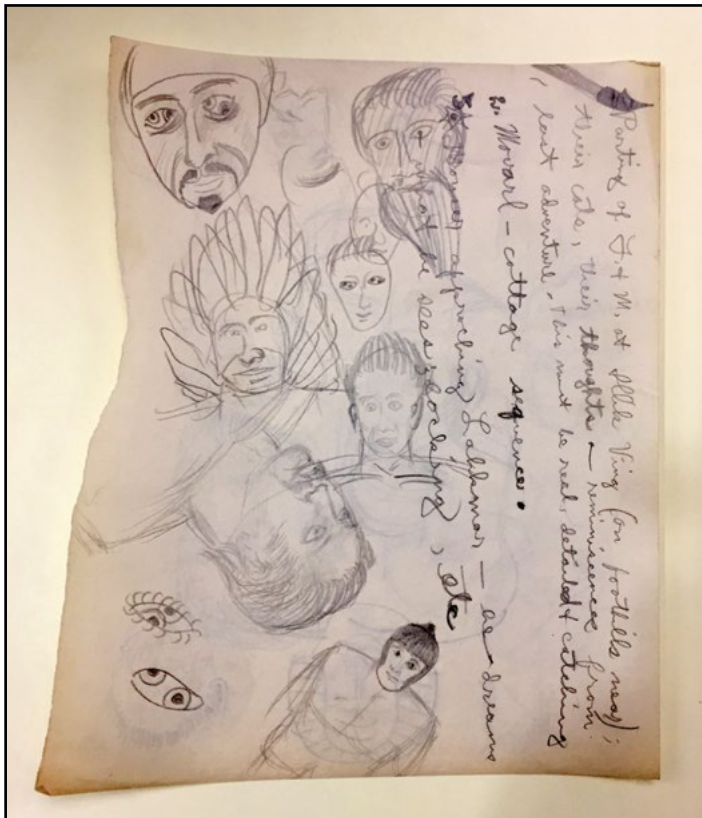 Parting of F. + M. at Illik Ving (on foothills near);
their cats, their thoughts – reminiscences from
last adventure. This must be real, detailed + catching
2. Movarl – cottage sequence.
approching Lahkmar – as dreams
+ what he sees; locking, etc